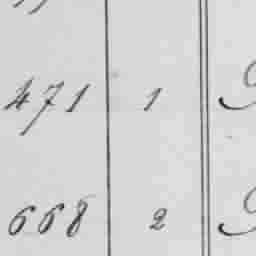 471 1
668 2